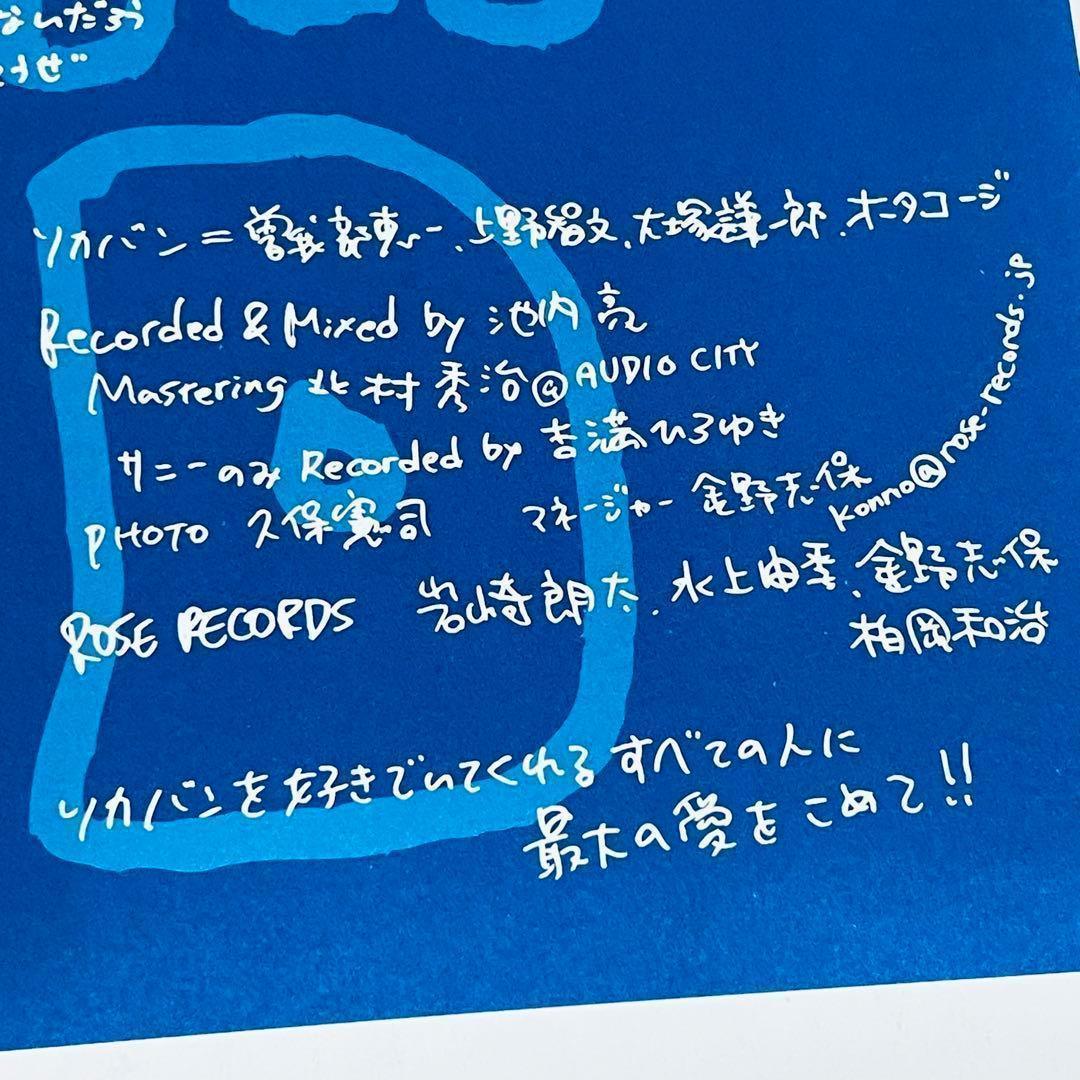 ないだろう
うぜ"
ソカバン=曽我部恵一、上野智文、大塚謙一郎、オータコージ
Recorded & Mixed by 池内亮
Mastering 北村秀治@AUDIO CITY
サニーのみ Recorded by 吉満ひろゆき
PHOTO 久保憲司 マネージャー 金野志保
konno@rose-records.jp
ROSE RECORDS 岩崎朗太、水上由季、金野志保
柏岡和浩
ソカバンを好きでいてくれるすべての人に
最大の愛をこめて!!